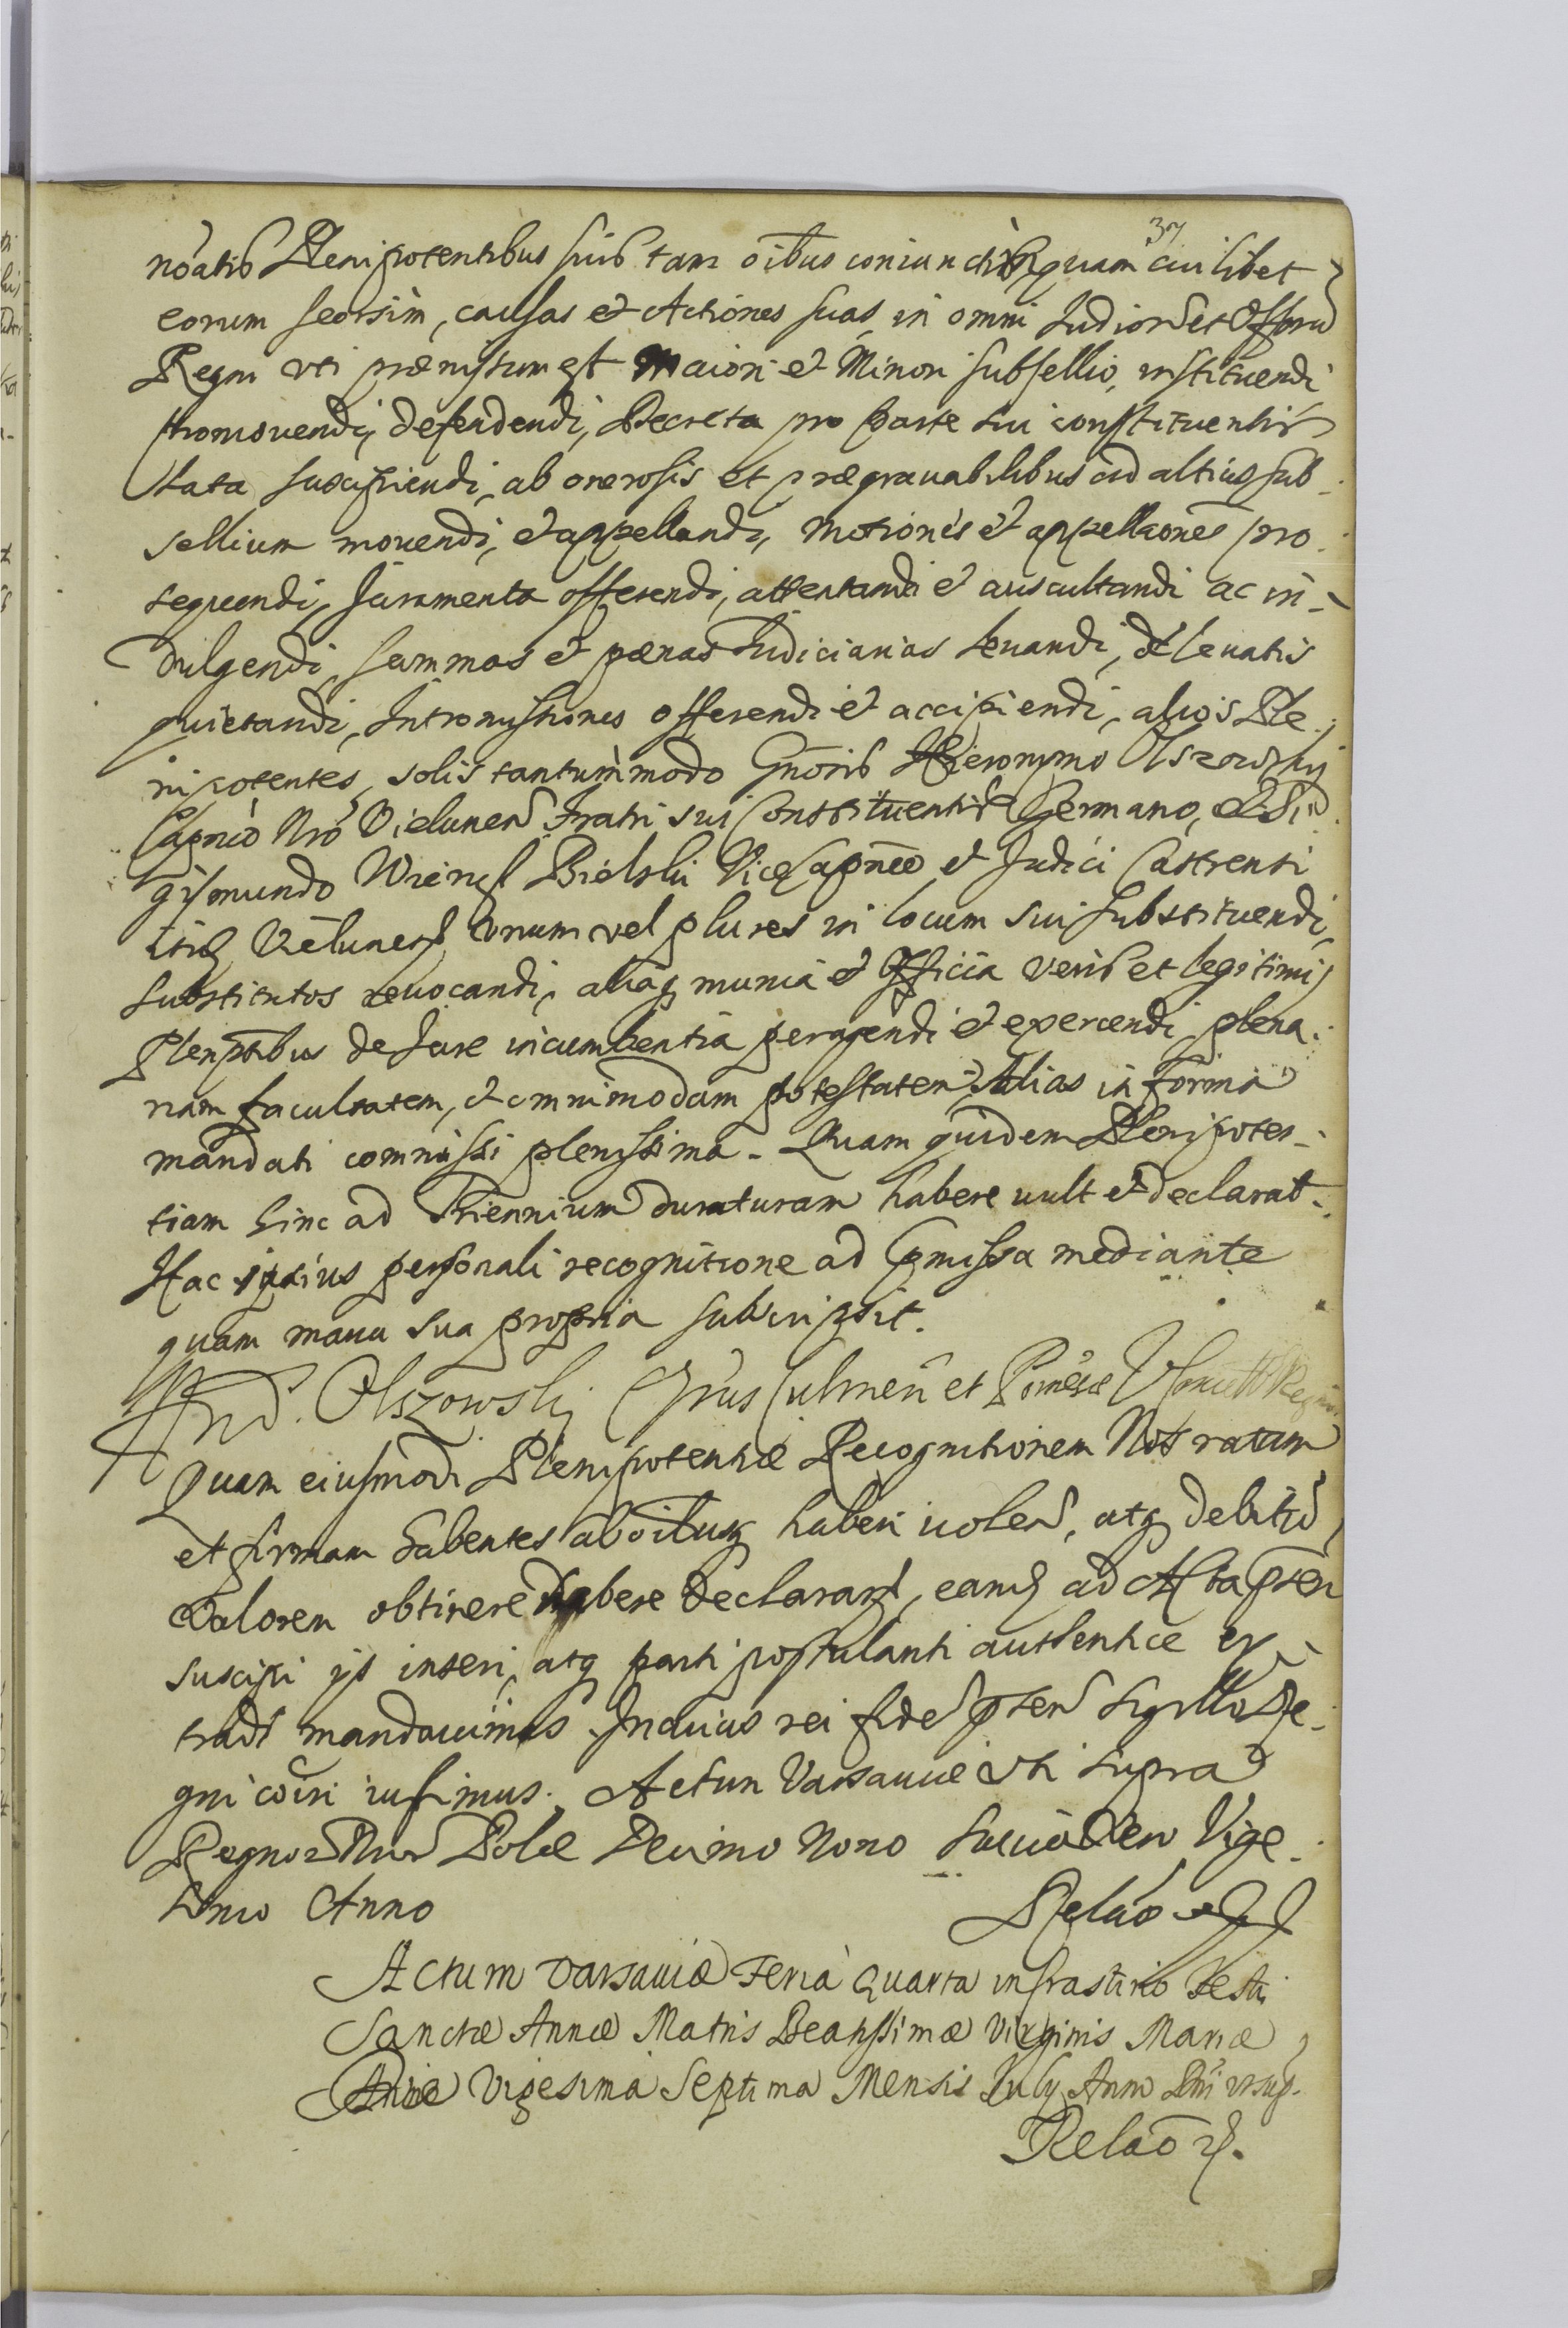 37
nōatis Plenipotentibus suis tam oībus coniunctim quam cuilibet
eorum seorsim, causas et Actiones suas, in omni Iudiorū et Offorū
Regni uti præmissum est Maiori et Minori subsellio, instituendi
promouendi, defendendi, Decreta pro parte sui constituentis
lata suscipiendi, ab onerosis et prægrauabilibus ad altius sub-
sellium mouendi, et appellandi, motiones et appellaōnes pro-
sequendi, Iuramenta offerendi, attentandi et auscultandi ac in-
dulgendi, summas et pœnas Iudiciarias leuandi, de leuatis
quietandi, Intromissiones offerendi et accipiendi, alios Ple-
nipotentes, solis tantummodo Gnōsis Hieronymo Olszowsky
Capneō Nrō Vielunen Fratri sui Constituentis Germano, et Si-
gismundo Bielski Vice Capneō et Iudici Castrensi
itid Vielunen Unum vel plures in locum sui substituendi,
substitutos reuocandi, aliaq munia et Officia veris et legitimis
Plenptibus de Iure incumbentia peragendi et exercendi plena-
riam facultatem, et omnimodam potestatem. Alias in forma
mandati commissi plenissima. Quam quidem Plenipoten-
tiam hinc ad Triennium duraturam habere uult et declarat.
Hac ipsius personali recognitione ad pmissa mediante
quam manu sua propria subscripsit.
And. Olszowski Eprus Culmeñ et Poméae V Regni
Quam eiusmodi Plenipotentiæ Recognitionem Nos ratam
et firmam habentes ab oībusq haberi uolen, atq debitū
valorem obtinere debere declaran, eamq ad Acta psen
suscipi ijs inseri, atq parti postulanti authentice ex-
tradi mandauimus. In cuius rei fide psen sigillo Re-
gni coīri iussimus. Actum Varsauiæ Uti supra
Regnor Nror Polæ Decimo Nono Sueciæ vero Vige-
simo Anno
Relaō
Actum Varsauiæ Feria Quarta in crastino Festi
Sanctæ Annæ Matris Beatissimæ Virginis Mariæ
Die Vigesima Septima Mensis Iuly Anno Dni utsup.
Relaō